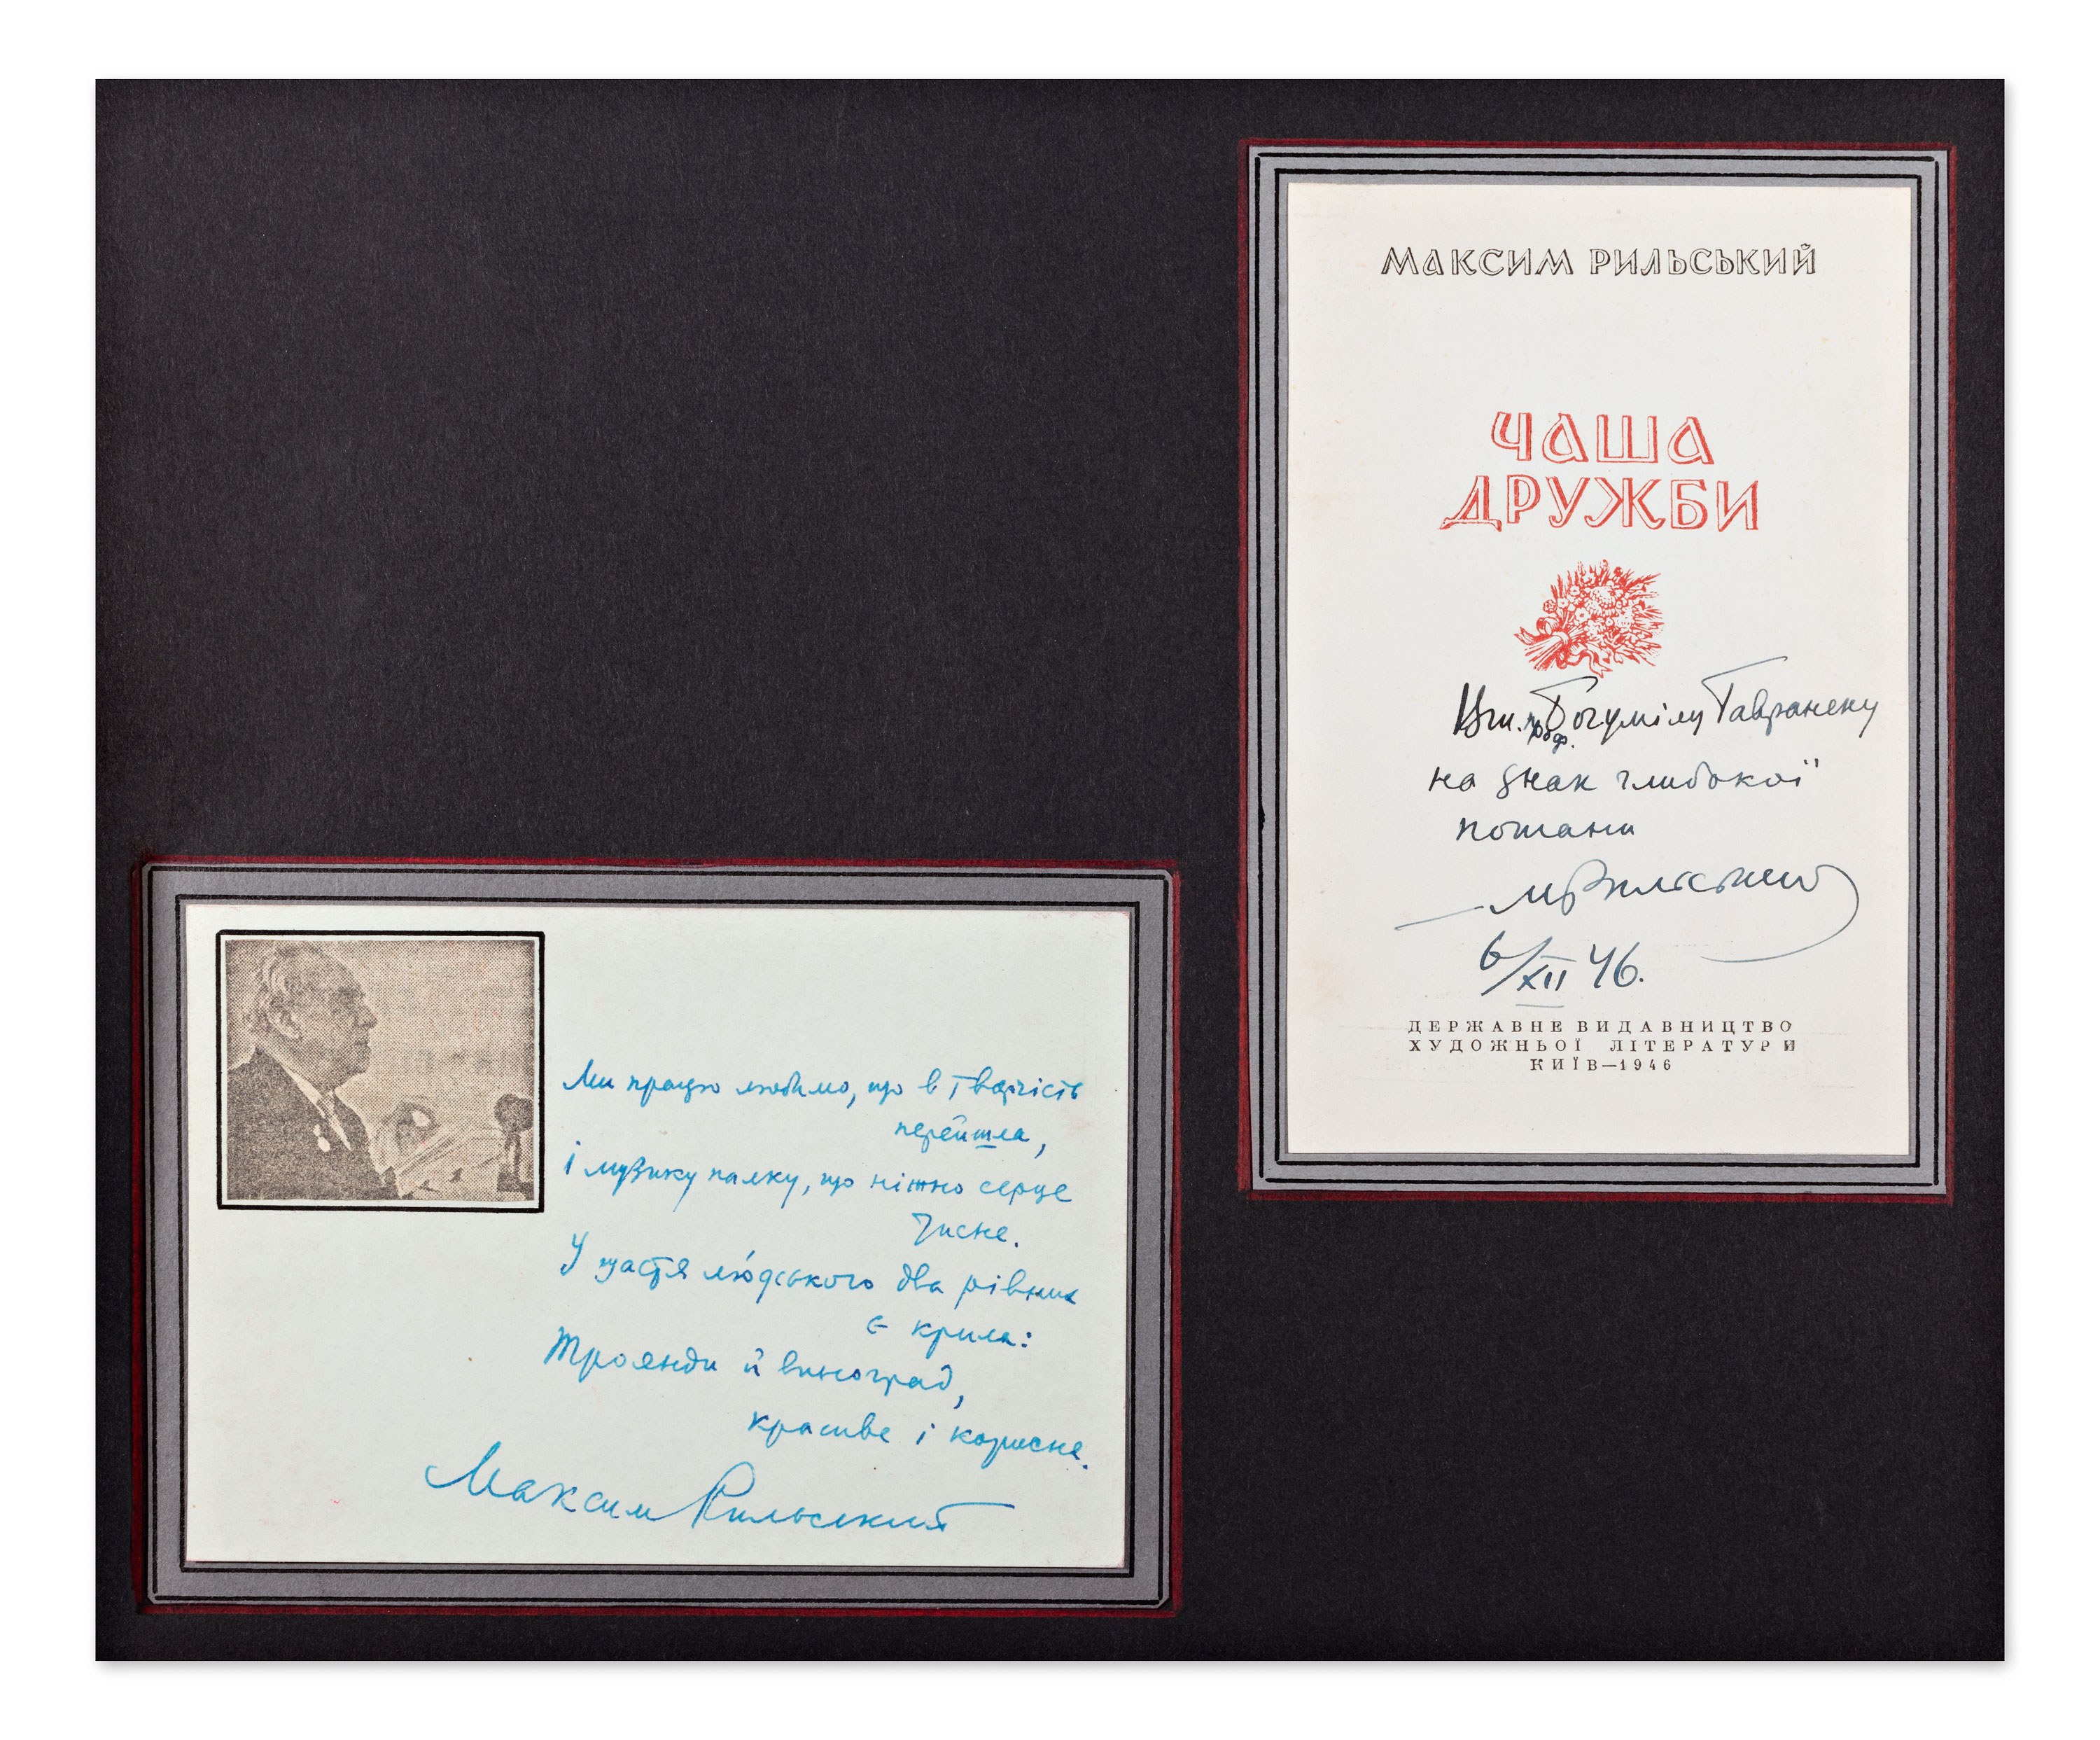 МАКСИМ РИЛЬСЬКИЙ
ЧАША
ДРУЖБИ
Вш. проф. Богумілу Гавранеку
на знак глибокої
пошани
МРильський
6/XII 46.
ДЕРЖАВНЕ ВИДАВНИЦТВО
ХУДОЖНЬОЇ ЛІТЕРАТУРИ
КИЇВ—1946
Ми працю любимо, що в творчість
перейшла,
і музику палку, що ніжно серце
тисне.
У щастя людського два рівних
є крила:
Троянди й виноград,
красиве і корисне.
Максим Рильський